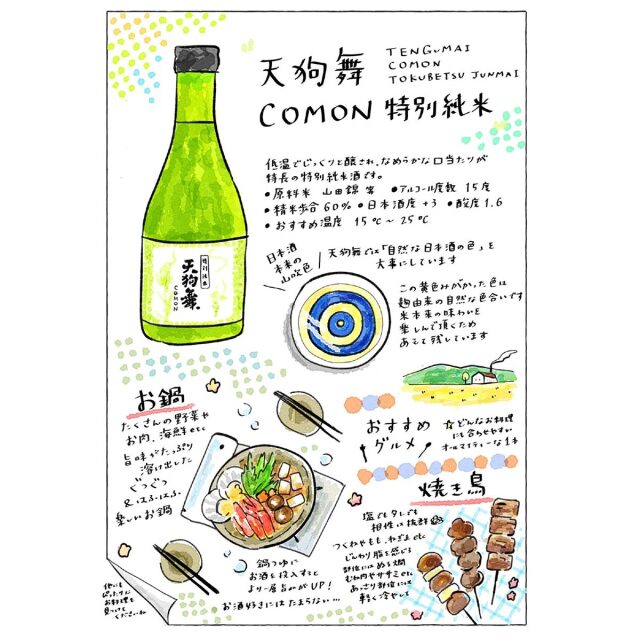 天狗舞
TENGUMAI
COMON
TOKUBETSU JUNMAI
COMON 特別純米
低温でじっくりと醸され、なめらかな口当たりが
特長の特別純米酒です。
●原料米 山田錦 等 ●アルコール度数 15度
●精米歩合 60% ●日本酒度 +3 ●酸度 1.6
●おすすめ温度 15℃~25℃
特別純米
天狗舞
COMON
日本酒
本来の
山吹色
天狗舞では「自然な日本酒の色」を
大事にしています
この黄色みがかった色は
麹由来の自然な色合いです
米本来の味わいを
楽しんで頂くため
あえて残しています
お鍋
たくさんの野菜や
お肉、海鮮etc
旨味がたっぷり
溶け出した
ぐつぐつ
&はふはふ
楽しいお鍋
おすすめ
グルメ
☆どんなお料理
にも合わせやすい
オールマイティーな1本
焼き鳥
塩でもタレでも
相性は抜群
つくねやもも、ねぎま etc
じんわり脂を感じる
部位にはぬる燗
むね肉やササミ etc
あっさり部位には
軽く冷やして
鍋つゆに
お酒を投入すると
より一層旨みがUP!
お酒好きにはたまらない…
他にも
ぴったりな
お料理を
見つけて
くださいね